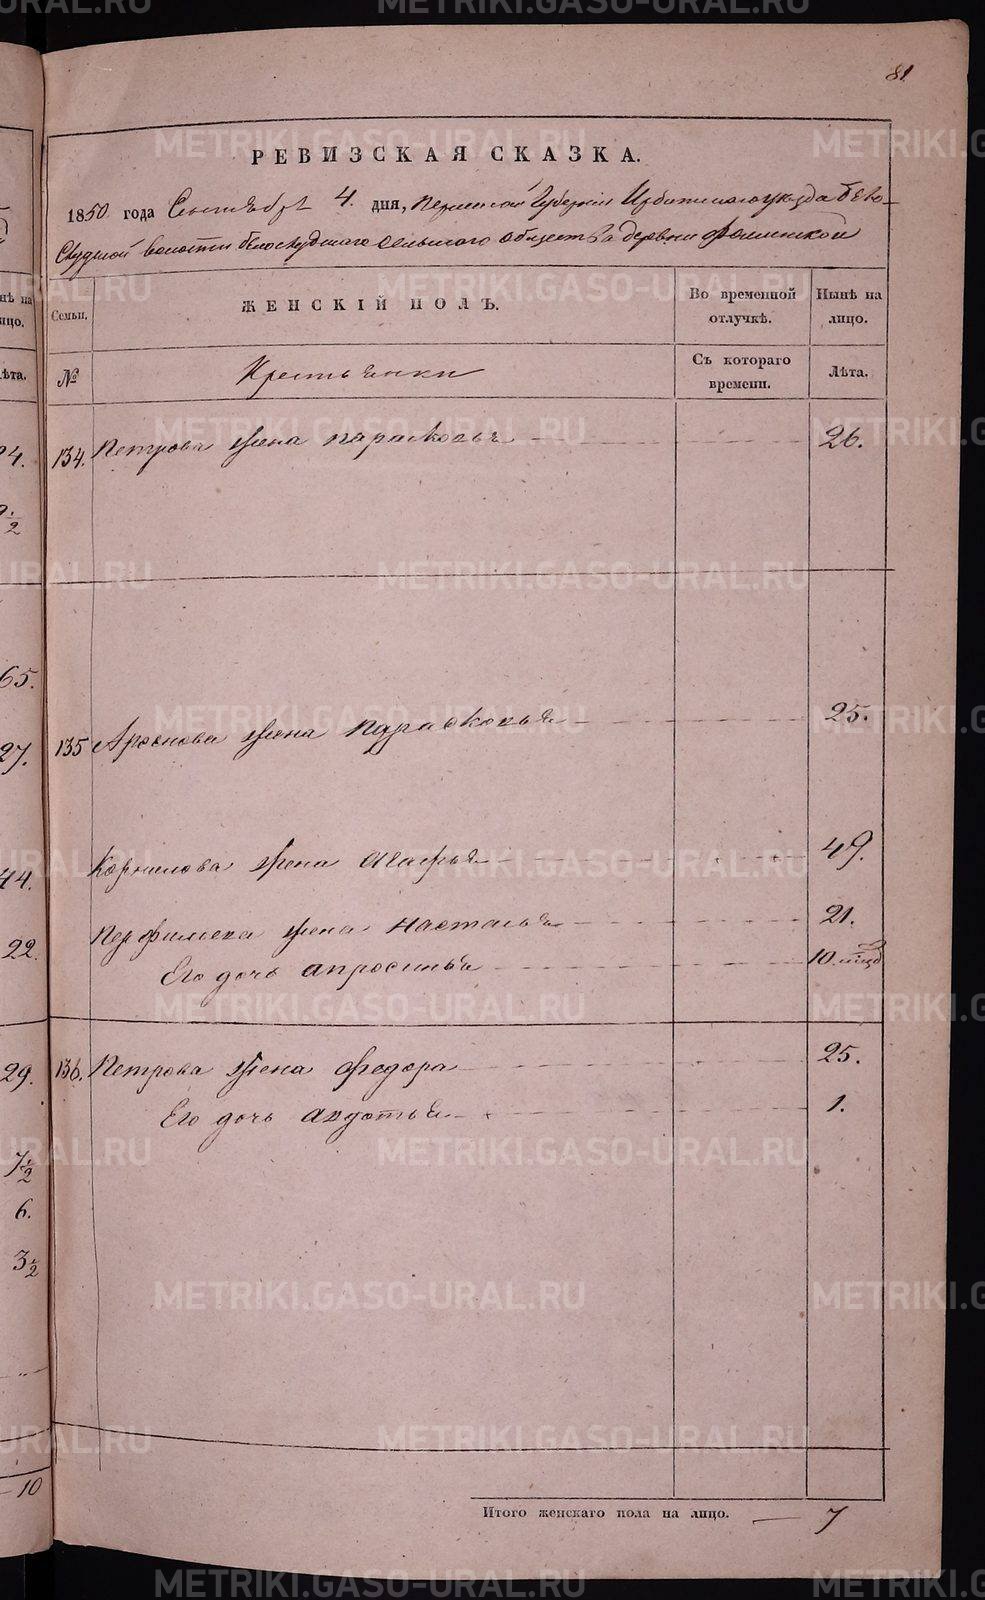 81
РЕВИЗСКАЯ СКАЗКА.
1850 года Сентября 4. дня, Пермской Губернии Ирбитскаго уезда Бело-
слудской волости белослудскаго сельскаго общества деревни Фоминской
Семьи.
ЖЕНСКІЙ ПОЛЪ.
Во временной отлучкѣ.
Нынѣ на лицо.
№
Крестьянки
Съ котораго времени.
Лѣта.
134. Петрова жена парасковья 26.
135 жена парасковья 25.
Корнилова жена агафья 49.
Перфильева жена настасья 21.
Его дочь апросинья 10.
136. Петрова жена федора 25.
Его дочь авдотья 1.
Итого женскаго пола на лицо. — 7
нѣ на
ицо.
ѣта.
65.
27.
44.
22.
29.
7 1/2
6.
3 1/2
10
METRIKI.GASO-URAL.RU